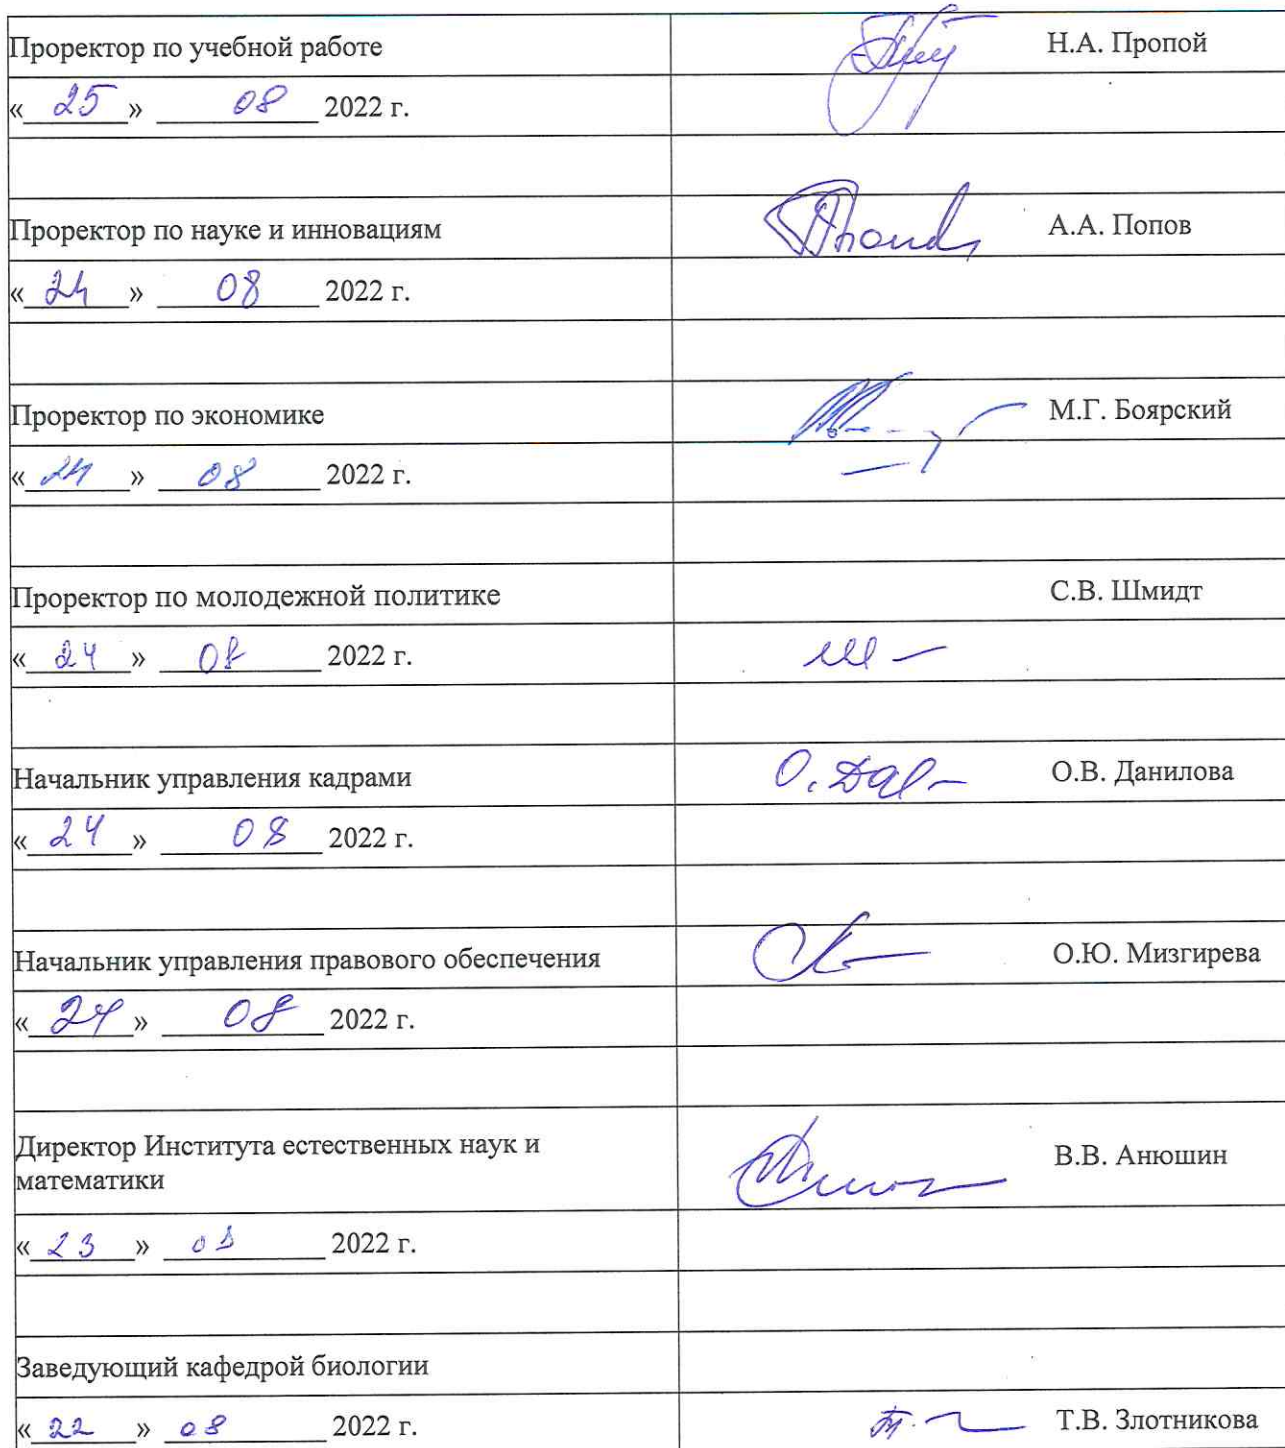 Проректор по учебной работе Н.А. Пропой
« 25 » 08 2022 г.
Проректор по науке и инновациям А.А. Попов
« 24 » 08 2022 г.
Проректор по экономике М.Г. Боярский
« 24 » 08 2022 г.
Проректор по молодежной политике С.В. Шмидт
« 24 » 08 2022 г.
Начальник управления кадрами О.В. Данилова
« 24 » 08 2022 г.
Начальник управления правового обеспечения О.Ю. Мизгирева
« 24 » 08 2022 г.
Директор Института естественных наук и
математики В.В. Анюшин
« 23 » 08 2022 г.
Заведующий кафедрой биологии
« 22 » 08 2022 г. Т.В. Злотникова